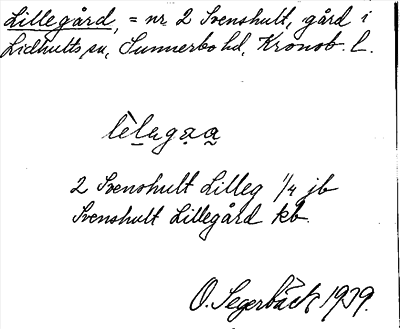 Lillegård, = nr 2 Svenshult, gård i
Lidhults sn, Sunnerbo hd, Kronob. L.
2 Svenshult Lilleg 1/4 jb
Svenshult Lillegård kb.
O. Segerbäck 1929.